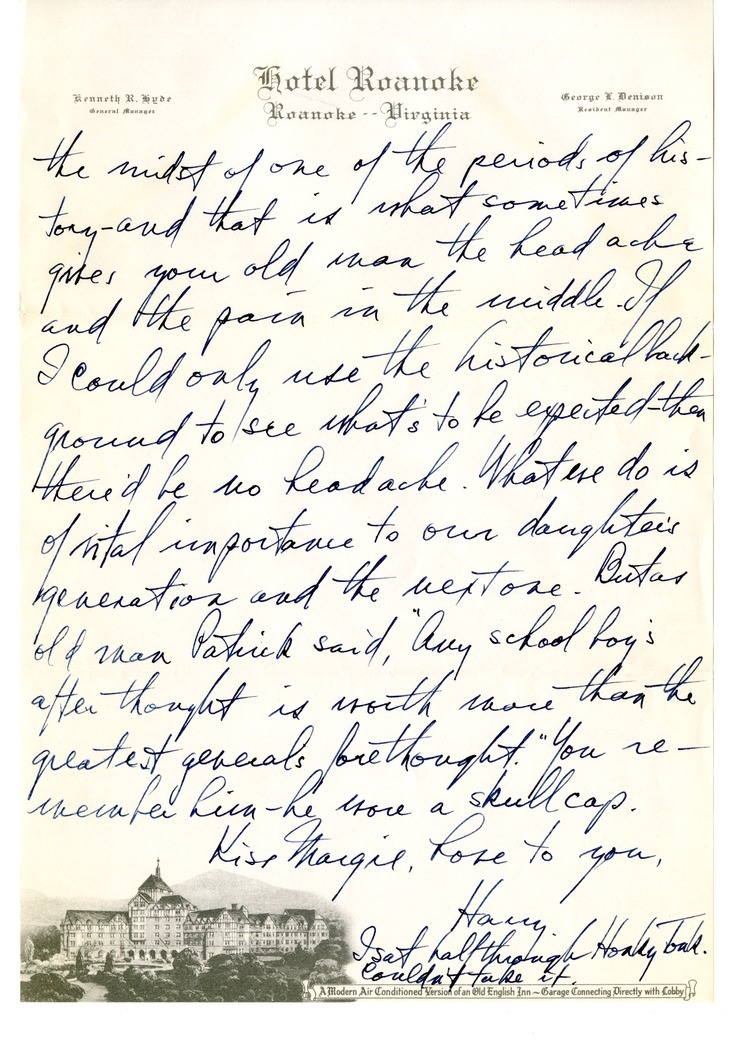 Hotel Roanoke
Roanoke -- Virginia
Kenneth R. Hyde
General Manager
George L. Denison
Resident Manager
the midst of one of the periods of his-
tory-and that is what sometimes
gives your old man the head ache
and the pain in the middle. If
I could only use the historical back-
ground to see what's to be expected-then
there'd be no headache. What we do is
of vital importance to our daughter's
generation and the next one. But as
old man Patrick said, "Any school boy's
after thought is worth more than the
greatest generals forethought." You re-
member him-he wore a skull cap.
Kiss Margie, love to you,
Harry
I sat half through Honky Tonk.
Couldn't take it.
A Modern Air Conditioned Version of an Old English Inn ~ Garage Connecting Directly with Lobby